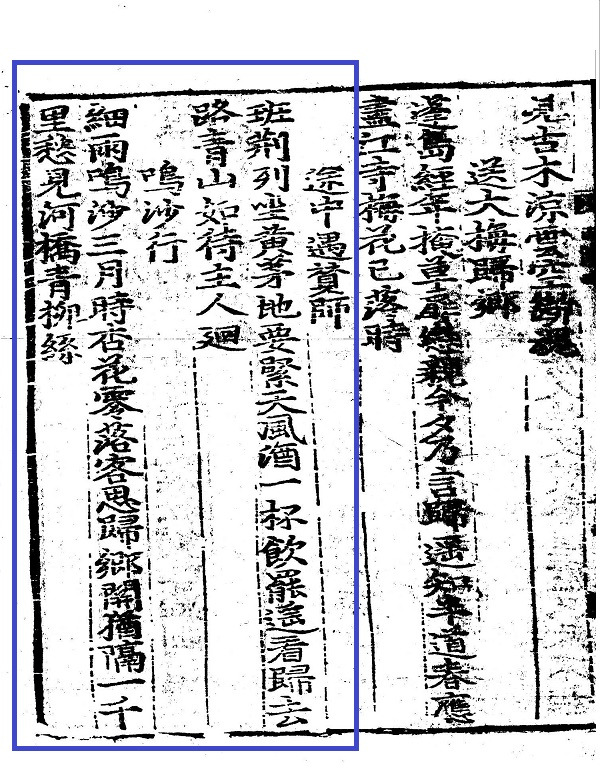 見古木凉雲空斷魂
送大梅歸鄉
蓬島經年掩親今夕乃言歸遥知半道春應
盡江寺梅花已落時
途中遇賛師
班荆列坐黄茅地要緊天風酒一杯飲罷遥看歸去
路青山如待主人廻
鳴沙行
細雨鳴沙三月時杏花零落客思歸鄉關猶隔一千
里愁見河橋青柳絲